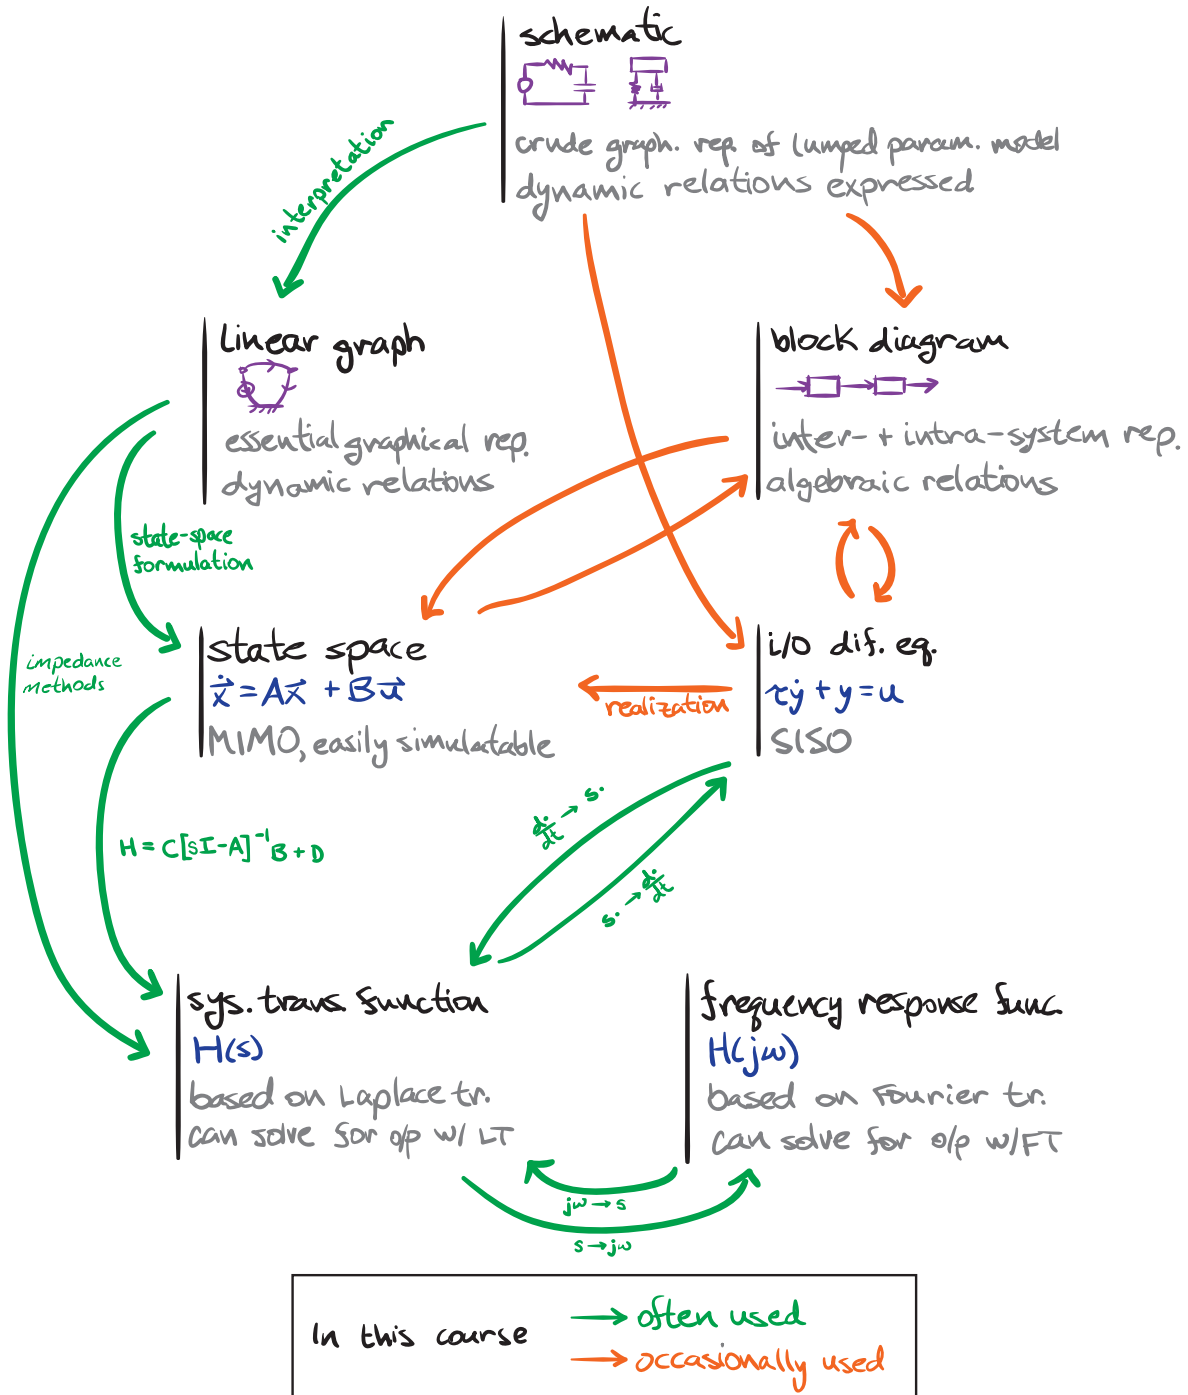 schematic
crude graph. rep. of lumped param. model
dynamic relations expressed
interpretation
linear graph
essential graphical rep.
dynamic relations
block diagram
inter- + intra-system rep.
algebraic relations
state-space
formulation
impedance
methods
state space
ẋ⃗ = Ax⃗ + Bu⃗
MIMO, easily simulatable
realization
i/o dif. eq.
τẏ + y = u
SISO
d·/dt → s·
s· → d·/dt
H = C[sI-A]⁻¹B + D
sys. trans. function
H(s)
based on Laplace tr.
can solve for o/p w/ LT
frequency response func.
H(jω)
based on Fourier tr.
can solve for o/p w/FT
jω → s
s → jω
In this course
→ often used
→ occasionally used